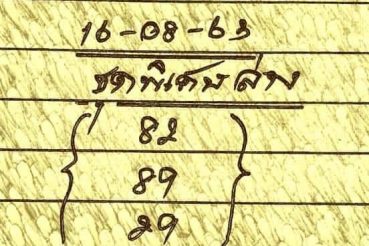 16-08-63
ชุดพิเศษล่าง
82
89
29